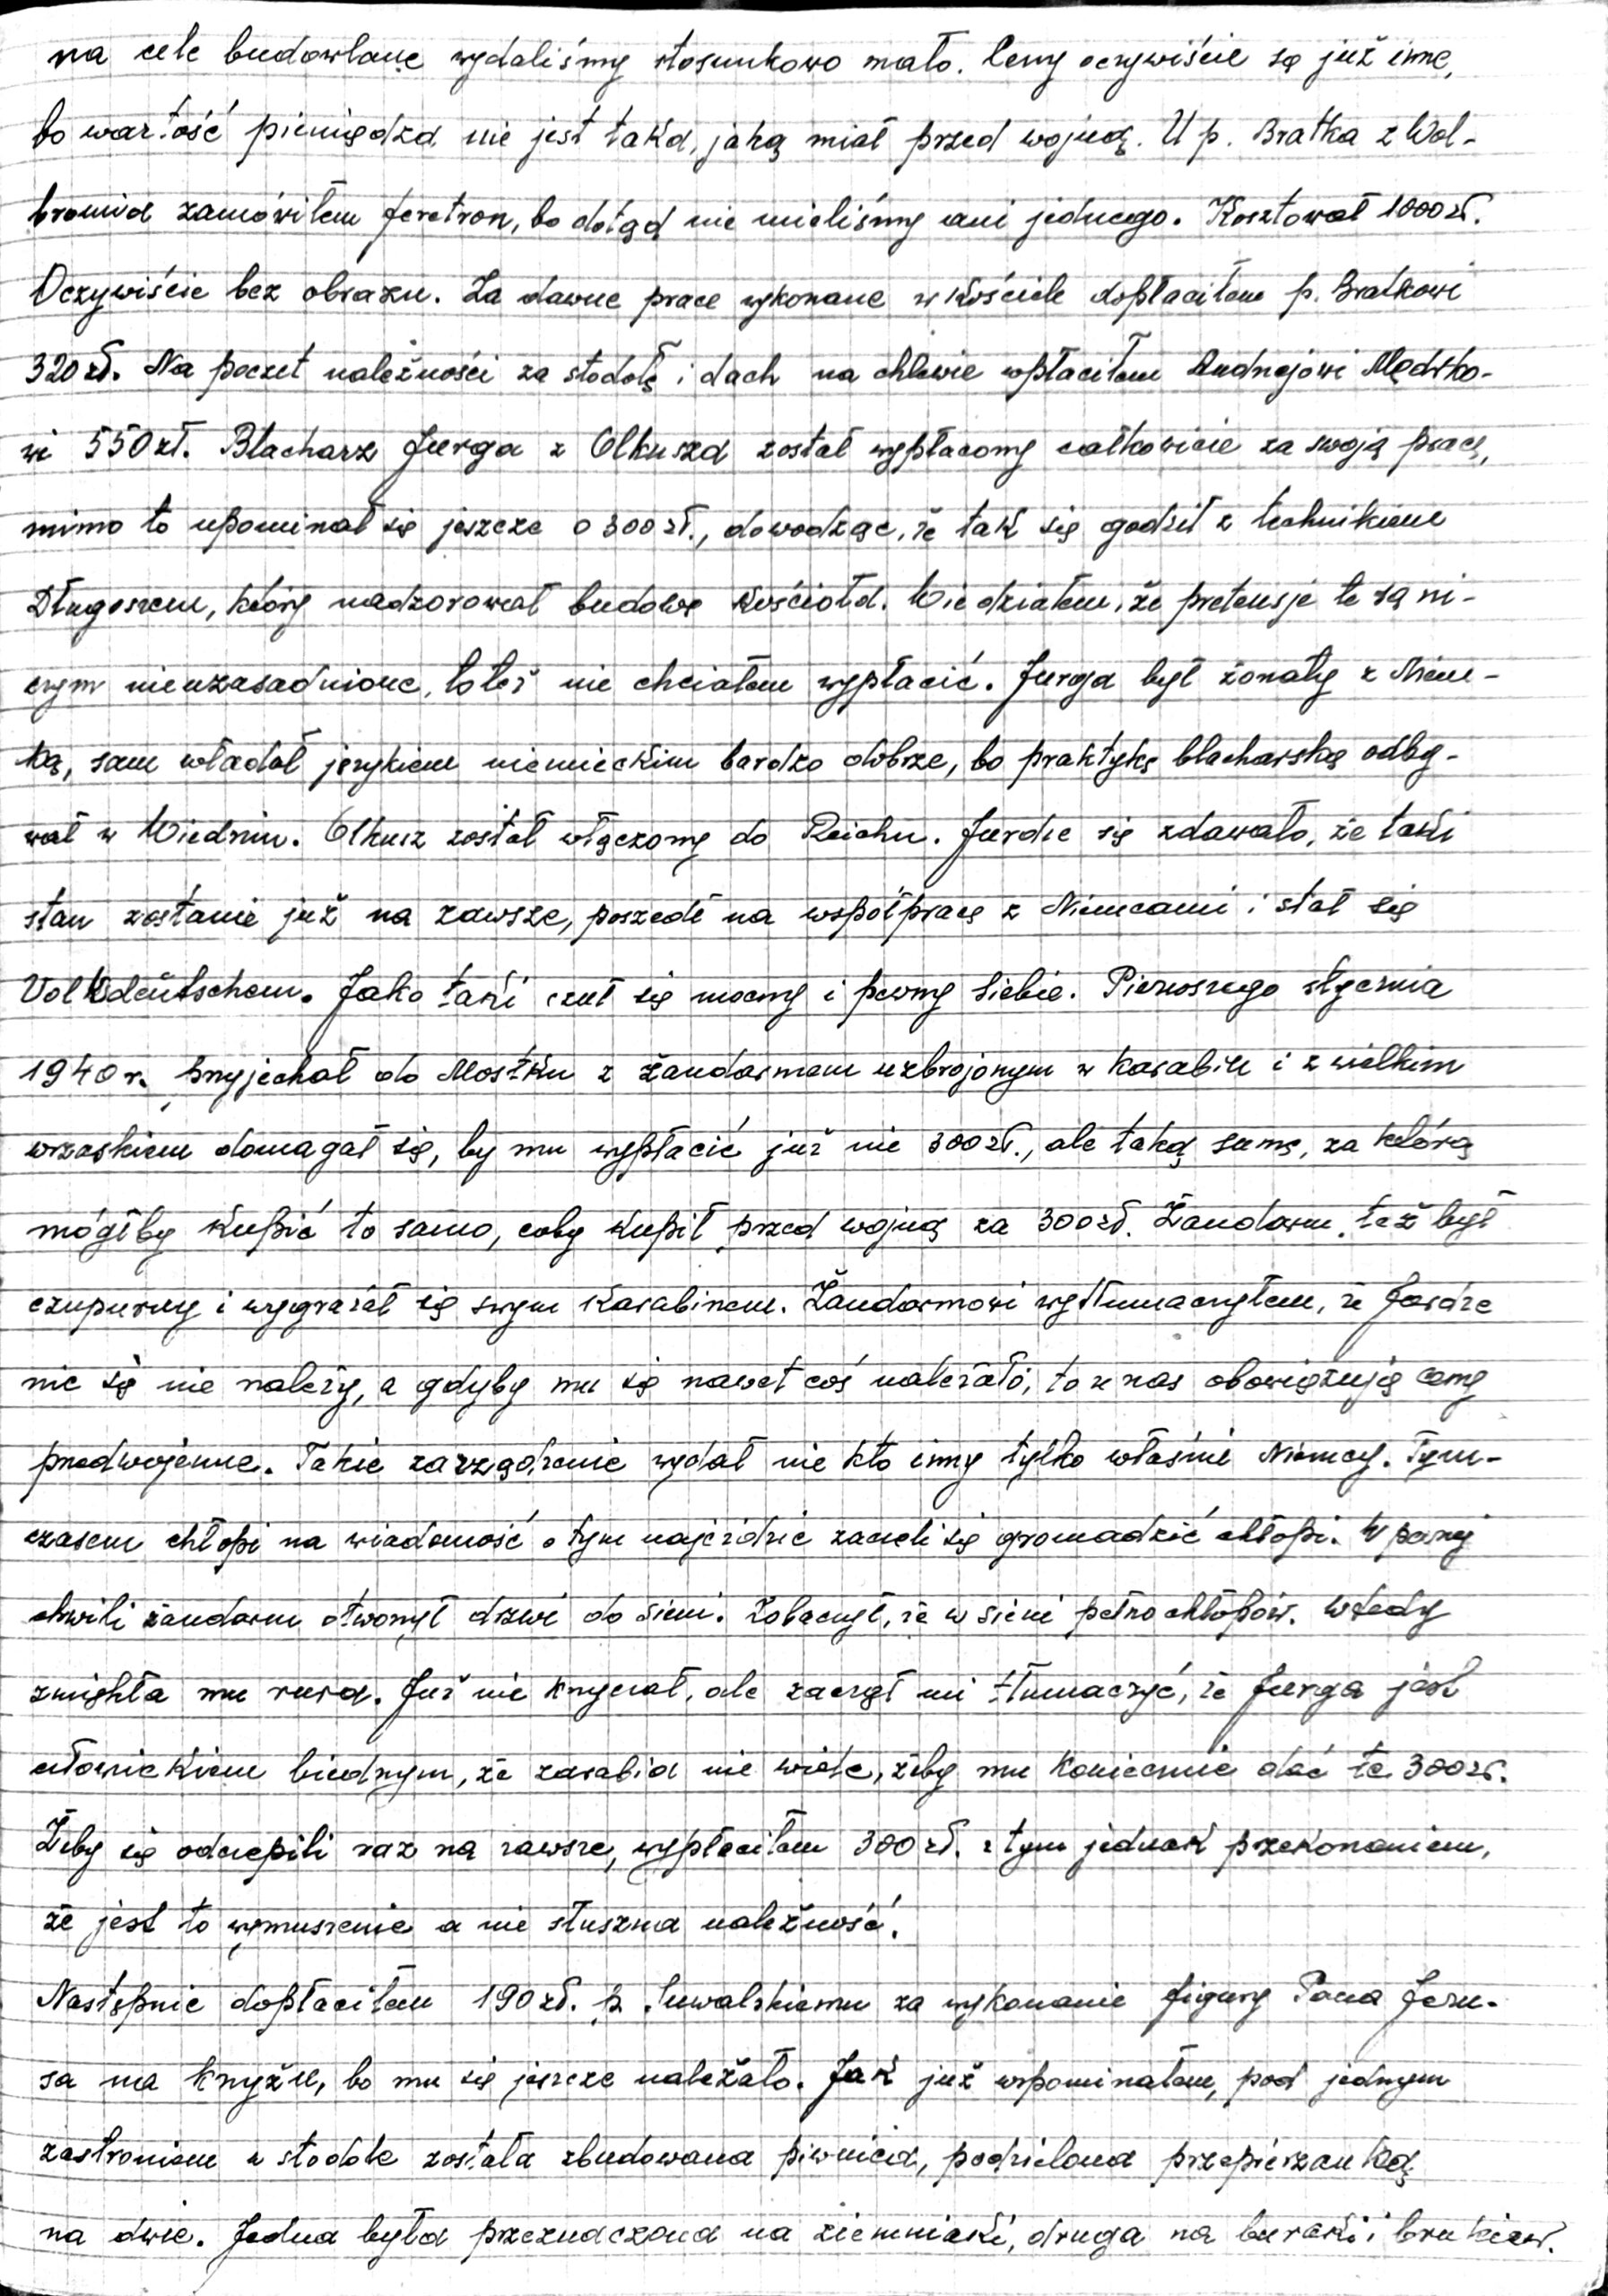 na cele budowlane wydaliśmy stosunkowo mało. Ceny oczywiście są już inne,
bo wartość pieniądza nie jest taka, jaką miał przed wojną. U p. Bratka z Wol-
bromia zamówiłem feretron, bo dotąd nie mieliśmy ani jednego. Kosztował 1000 zł.
Oczywiście bez obrazu. Za dawne prace wykonane w kościele dopłaciłem p. Bratkowi
320 zł. Na poczet należności za stodołę i dach na chlewie wpłaciłem Andrzejowi Mędrko-
wi 550 zł. Blacharz Jurga z Olkusza został wypłacony całkowicie za swoją pracę,
mimo to upominał się jeszcze o 300 zł., dowodząc, że tak się godził z technikiem
Długoszem, który nadzorował budowę kościoła. Wiedziałem, że pretensje te są ni-
czym nieuzasadnione, toteż nie chciałem wypłacić. Jurga był żonaty z Niem-
ką, sam władał językiem niemieckim bardzo dobrze, bo praktykę blacharską odby-
wał w Wiedniu. Olkusz został włączony do Reichu. Jurdze się zdawało, że taki
stan zostanie już na zawsze, poszedł na współpracę z Niemcami i stał się
Volkdeutschem. Jako taki czuł się mocny i pewny siebie. Pierwszego stycznia
1940 r. przyjechał do Mostku z żandarmem uzbrojonym w karabin i z wielkim
wrzaskiem domagał się, by mu wypłacić już nie 300 zł., ale taką sumę, za którą
mógłby kupić to samo, coby kupił przed wojną za 300 zł. Żandarm też był
czupurny i wygrażał się swym karabinem. Żandarmowi wytłumaczyłem, że Jurdze
nic się nie należy, a gdyby mu się nawet coś należało, to u nas obowiązują ceny
przedwojenne. Takie zarządzenie wydał nie kto inny tylko właśnie Niemcy. Tym-
czasem chłopi na wiadomość o tym najeździe zaczęli się gromadzić chłopi. W pewnej
chwili żandarm otworzył drzwi do sieni. Zobaczył, że w sieni pełno chłopów. Wtedy
zmiękła mu rura. Już nie krzyczał, ale zaczął mi tłumaczyć, że Jurga jest
człowiekiem biednym, że zarabia nie wiele, żeby mu koniecznie dać te 300 zł.
Żeby się odczepili raz na zawsze, wypłaciłem 300 zł. z tym jednak przekonaniem,
że jest to wymuszenie a nie słuszna należność.
Następnie dopłaciłem 190 zł. p. Suwalskiemu za wykonanie figury Pana Jezu-
sa na krzyżu, bo mu się jeszcze należało. Jak już wspominałem, pod jednym
zastroniem w stodole została zbudowana piwnica, podzielona przepierzanką
na dwie. Jedna była przeznaczona na ziemniaki, druga na buraki i brukiew.